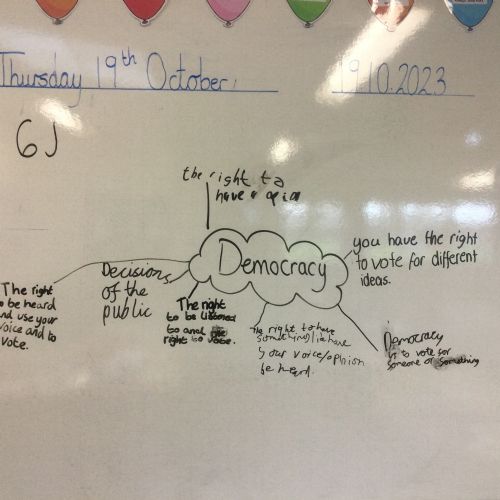 Thursday 19th October
19.10.2023
6J
the right to
have a opion
Democracy
you have the right
to vote for different
ideas.
Decisions
of the
public
The right
to be heard
and use your
voice and to
vote.
The right
to be listened
to and
right to vote.
The right to have
something/ie have
your voice/opinion
be heard.
Democracy
is to vote for
someone or something